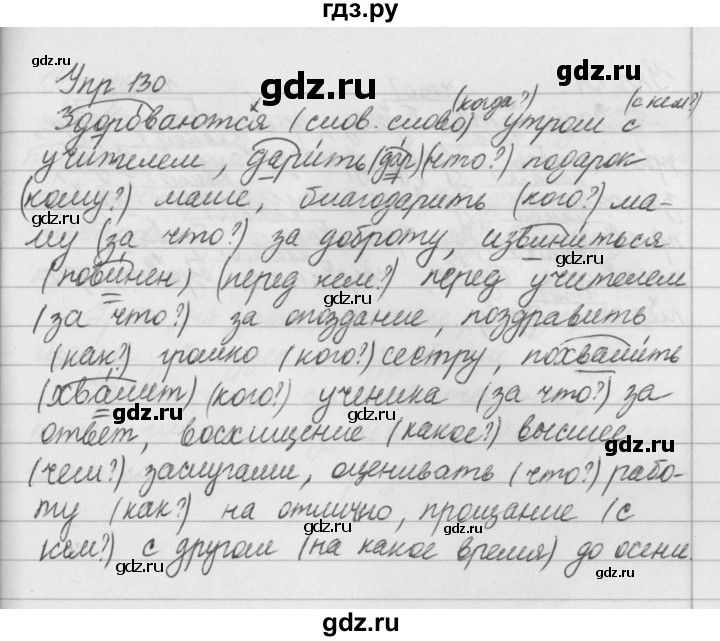 гдз.ру
gdz.ru
Упр 130
gdz.ru
gdz.ru
(когда?) (с кем?)
Здороваются (слов. слово) утром с
учителем, дарить (дар) (что?) подарок
gdz.ru
(кому?) маше, благодарить (кого?) ма-
gdz.ru
му (за что?) за доброту, извиниться
gdz.ru
(повинен) (перед кем?) перед учителем
gdz.ru
(за что?) за опоздание, поздравить
(как?) громко (кого?) сестру, похвалить
gdz.ru
(хвалит) (кого?) ученика (за что?) за
gdz.ru gdz.ru
ответ, восхищение (какое?) высшее
gdz.ru
(чем?) заслугами, оценивать (что?) рабо-
gdz.ru
ту (как?) на отлично, прощание (с
gdz.ru gdz.ru
кем?) с другом (на какое время) до осени.
gdz.ru gdz.ru
gdz.ru